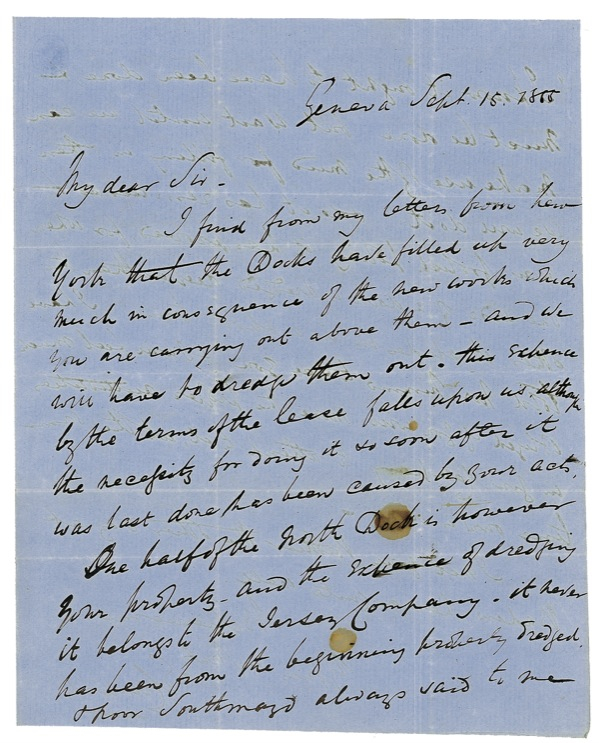 Geneva Sept. 15. 1855
My dear Sir -
I find from my letters from New
York that the Docks have filled up very
much in consequence of the new works which
you are carrying out above them - and we
will have to dredge them out. This expence
by the terms of the lease falls upon us, although
the necessity for doing it so soon after it
was last done has been caused by your acts.
One half of the North Dock is however
your property - and the expence of dredging
it belongs to the Jersey Company - it never
has been from the beginning properly dredged.
& poor Southmayd always said to me